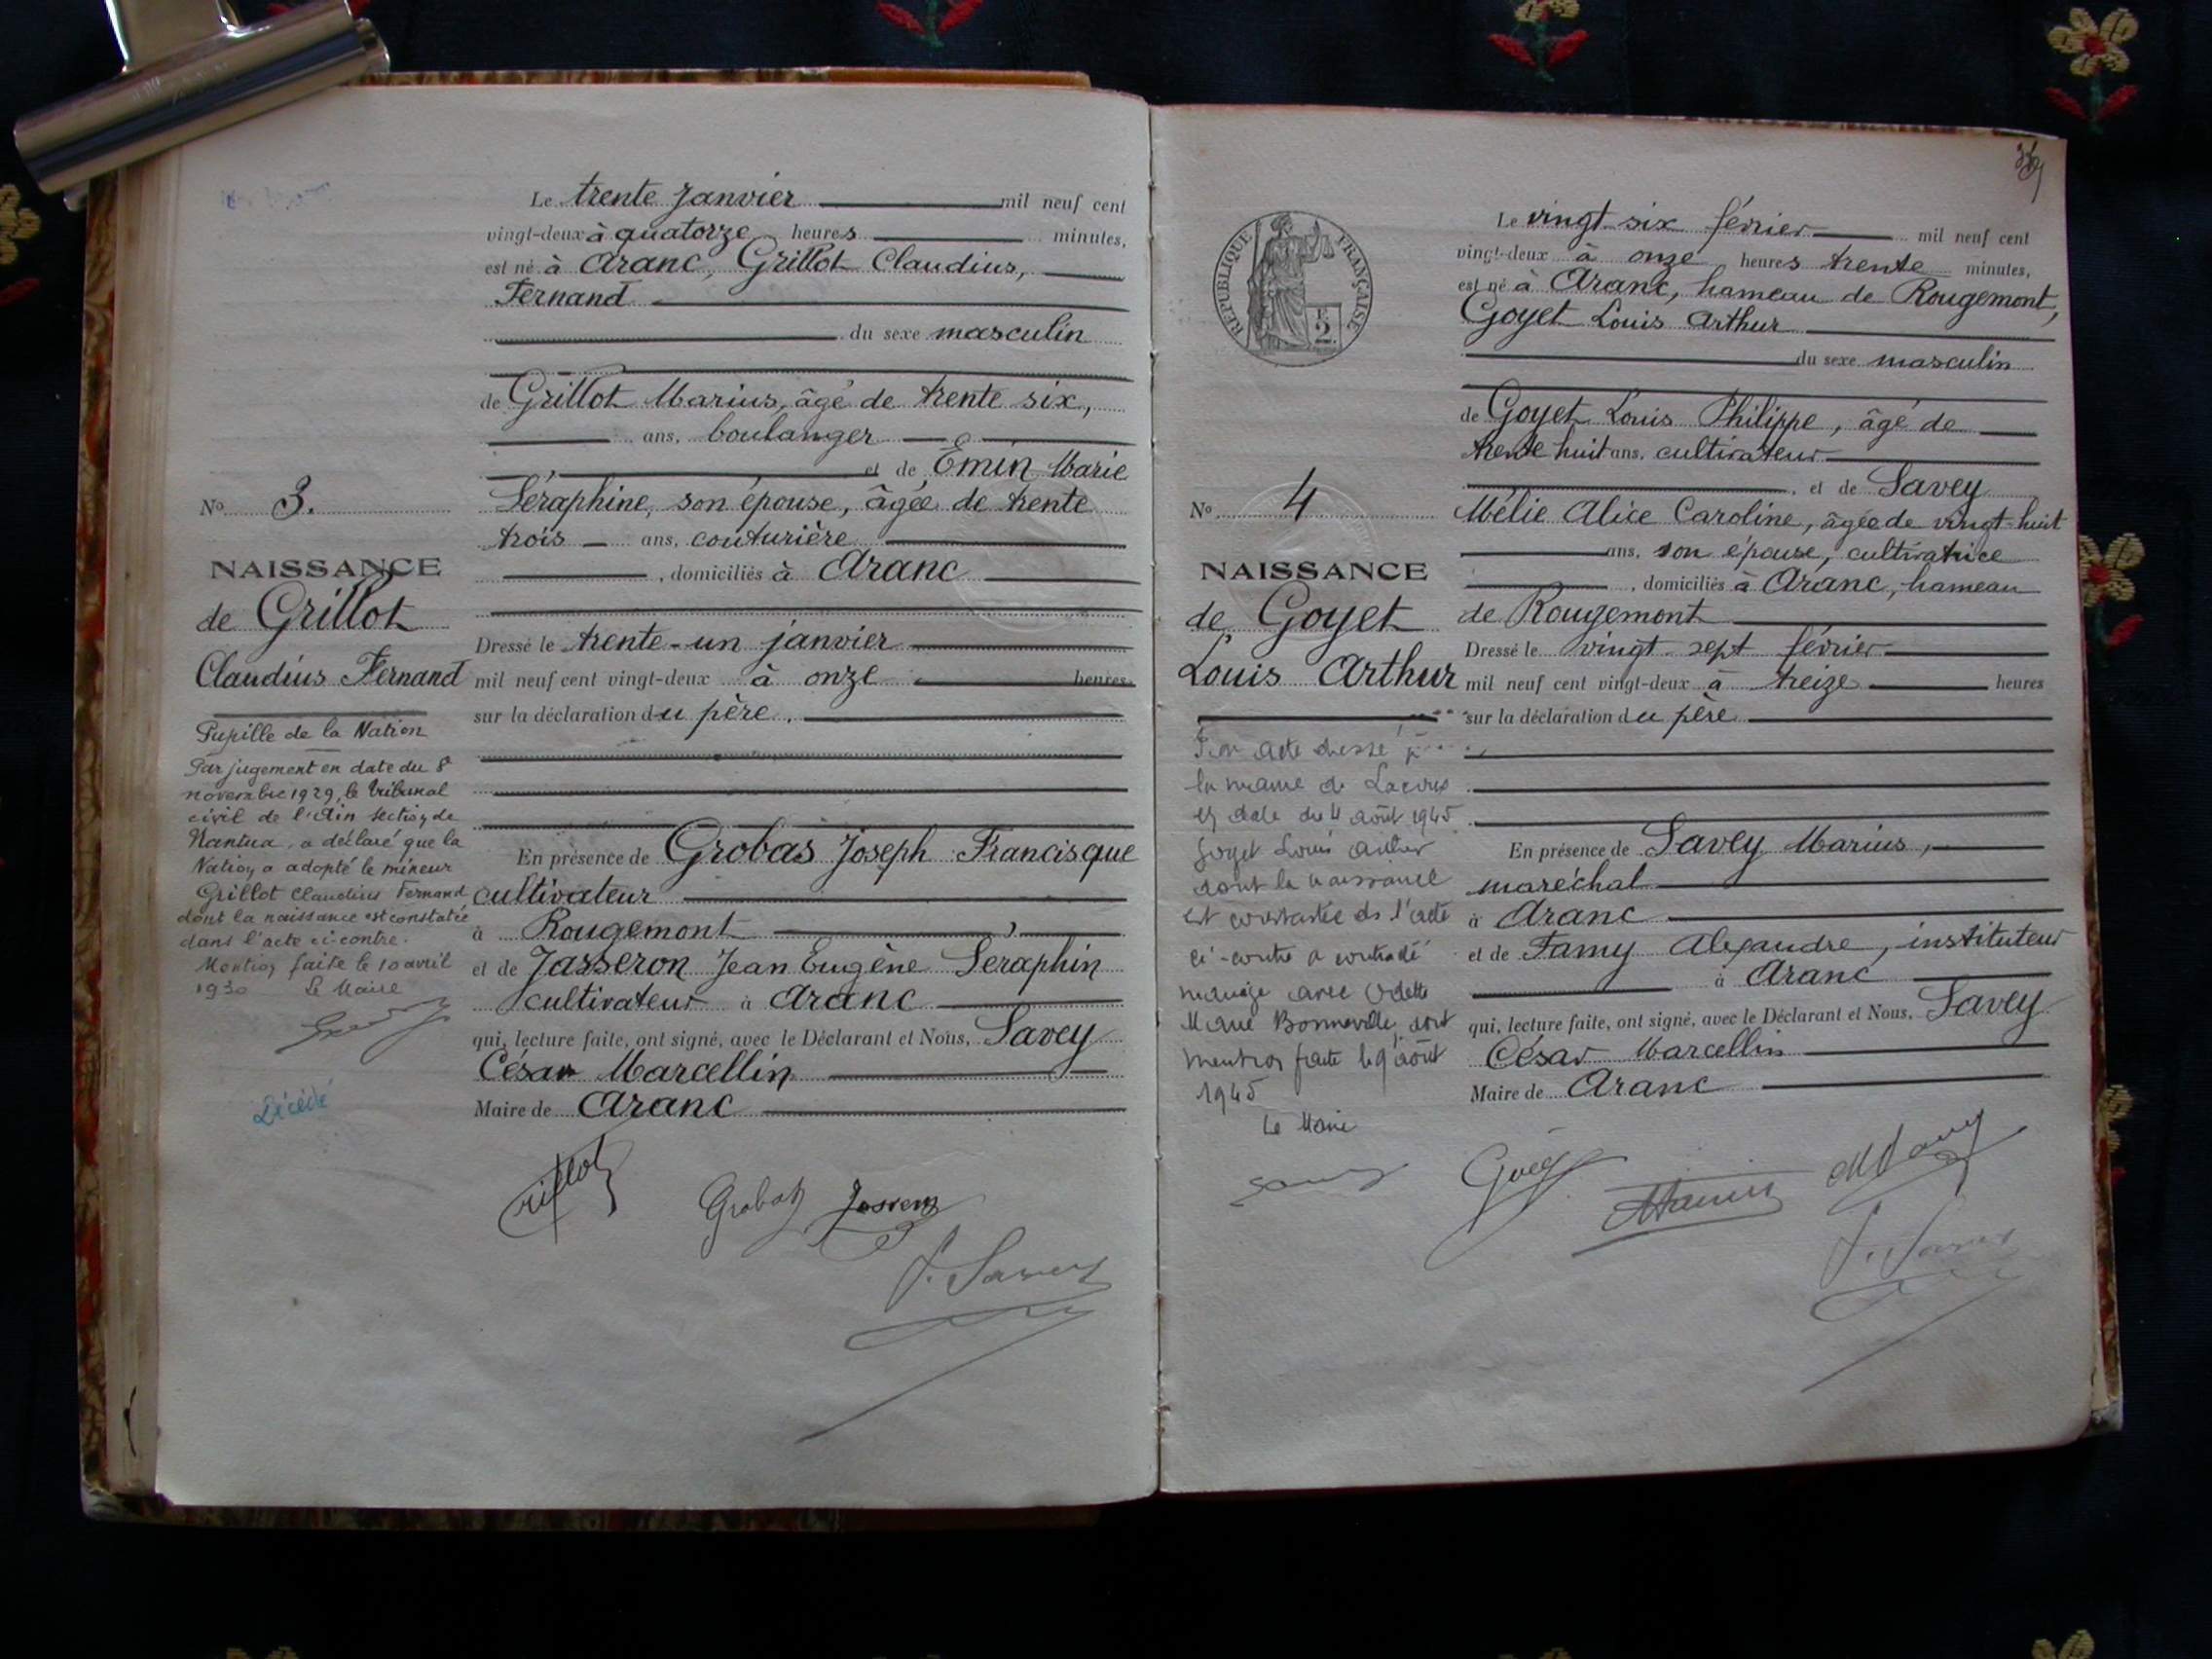 Le trente janvier mil neuf cent
vingt-deux à quatorze heures minutes,
est né à Aranc, Grillot Claudius,
Fernand
du sexe masculin
de Grillot Marius, âgé de trente six,
ans, boulanger
et de Emin Marie
Séraphine, son épouse, âgée de trente
trois ans, couturière
, domiciliés à Aranc
Dressé le trente-un janvier
mil neuf cent vingt-deux à onze heures
sur la déclaration du père.
En présence de Grobas Joseph Francisque
cultivateur
à Rougemont,
et de Jasseron Jean Eugène Séraphin
cultivateur à Aranc
qui, lecture faite, ont signé, avec le Déclarant et Nous, Savey
César Marcellin
Maire de Aranc
Grillot
Grobas Jasseron
J. Savey
No 3.
NAISSANCE
de Grillot
Claudius Fernand
Pupille de la Nation
Par jugement en date du 8
novembre 1929, le tribunal
civil de l'Ain section de
Nantua, a déclaré que la
Nation a adopté le mineur
Grillot Claudius Fernand
dont la naissance est constatée
dans l'acte ci-contre.
Mention faite le 10 avril
1930 Le Maire
Décédé
REPUBLIQUE FRANÇAISE
2
Le vingt-six février mil neuf cent
vingt-deux à onze heures trente minutes,
est né à Aranc, hameau de Rougemont,
Goyet Louis Arthur
du sexe masculin
de Goyet Louis Philippe, âgé de
trente huit ans, cultivateur
, et de Savey
Mélie Alice Caroline, âgée de vingt-huit
ans, son épouse, cultivatrice
, domiciliés à Aranc, hameau
de Rougemont
Dressé le vingt-sept février
mil neuf cent vingt-deux à treize heures
sur la déclaration du père
En présence de Savey Marius,
maréchal
à Aranc
et de Famy Alexandre, instituteur
à Aranc
qui, lecture faite, ont signé, avec le Déclarant et Nous, Savey
César Marcellin
Maire de Aranc
J. Savey
No 4
NAISSANCE
de Goyet
Louis Arthur
Par acte dressé à
la mairie de
en date du 4 août 1945
Goyet Louis Arthur
dont la naissance
est constatée ds l'acte
ci-contre a contracté
mariage avec Odette
Marie Bonneville, dont
mention faite le 9 août
1945
Le Maire